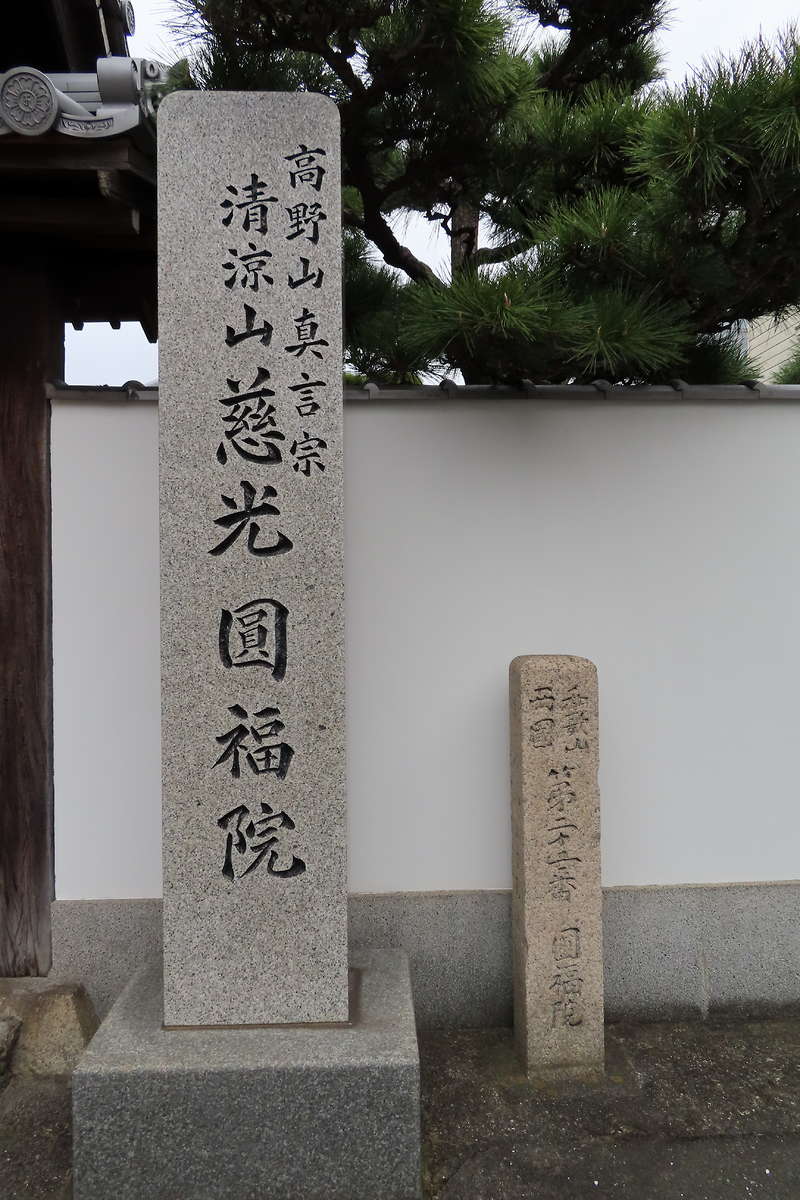 高野山真言宗
清涼山慈光圓福院
和歌山
西國
第二十番 圓福院